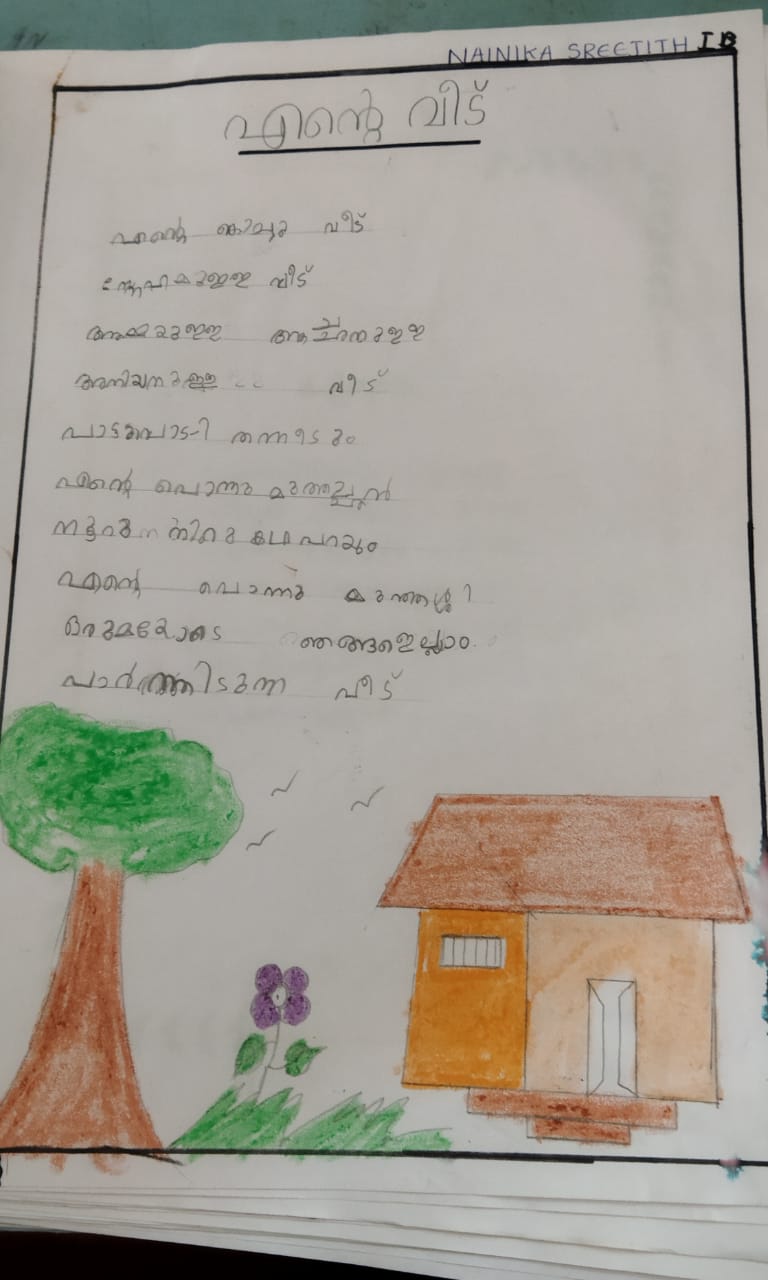 NAINIKA SREEJITH I B
എന്റെ വീട്
എന്റെ കൊച്ചു വീട്
സ്നേഹമുള്ള വീട്
അമ്മയുള്ള അച്ഛനുള്ള
അനിയനുള്ള വീട്
പാട്ടുപാടി തന്നിടും
എന്റെ പൊന്നു മുത്തച്ഛൻ
കഥ പറയും
എന്റെ പൊന്നു മുത്തശ്ശി
ഒരുമയോടെ ഞങ്ങളെല്ലാം
പാർത്തിടുന്ന വീട്